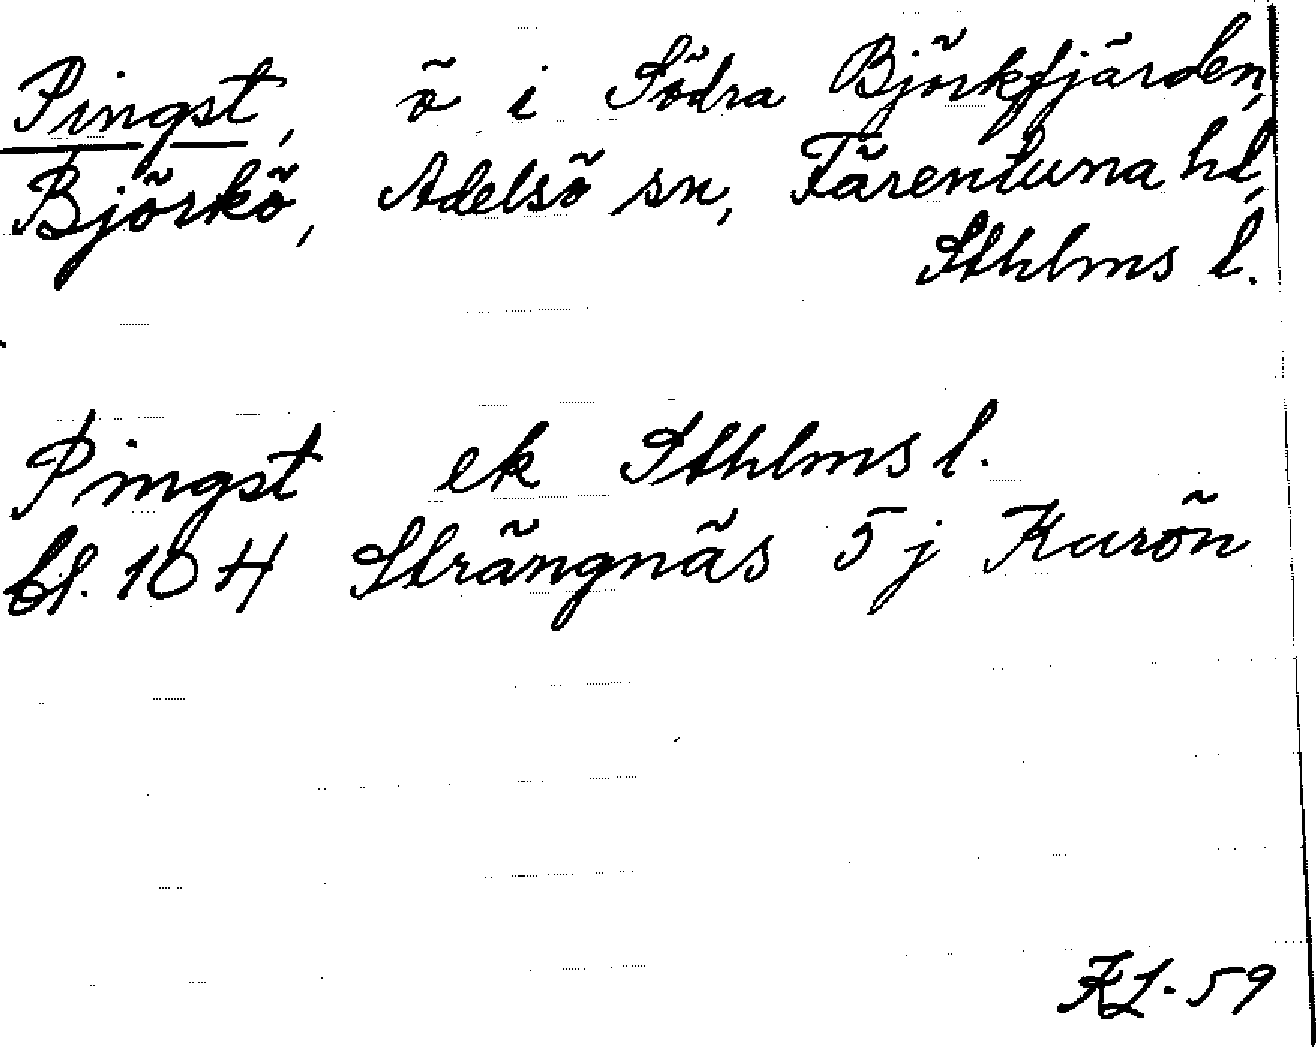 Pingst, ö i Södra Björkfjärden,
Björkö, Adelsö sn, Färentuna hd,
Sthlms l.
Pingst ek Sthlms l.
bl. 10 H Strängnäs 5 j Kurön
KL. 59